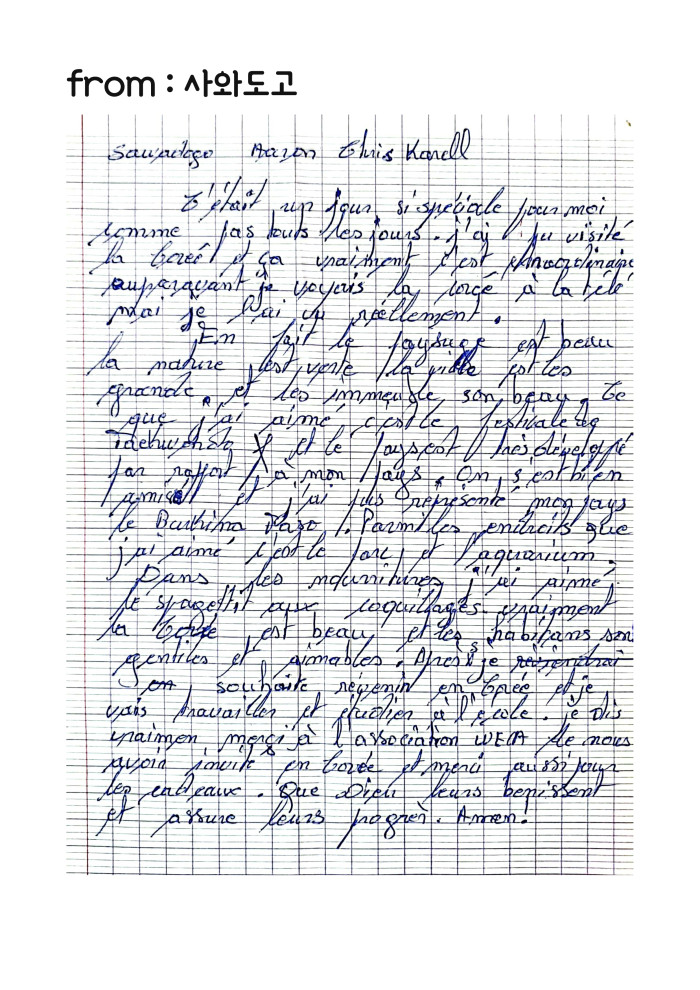 from : 사와도고
Sawadogo Aaron Chris Karell
C'était un jour si spéciale pour moi
comme pas touts les jours. j'ai pu visité
la Coreé et ça vraiment c'est
auparavant je voyais la coreé à la télé
mai je l'ai vu réellement.
En fait le paysage est beau
la nature est verte la ville est les
grande, et les immeuble son beau. Ce
que j'ai aimé c'est le festivale de
Taekwondo et le pays est très dévelopé
par raport à mon pays. On s'est bien
amisé et j'ai pus représenté mon pays
le Burkina Faso. Parmi les endroits que
j'ai aimé c'est le parc et l'aquarium.
Dans les nourritures j'ai aimé
le spagettit aux coquillages. vraiment
la Corée est beau et les habitans son
gentiles et aimables. Après je
souhaite revenir en Corée et je
vais travailler et étudier à l'école. je dis
vraimen merçi à l'association WECA de nous
avoir invité en Corée et merci aussi pour
les cadeaux. Que Dieu leurs benissent
et assure leurs progrèr. Amen.